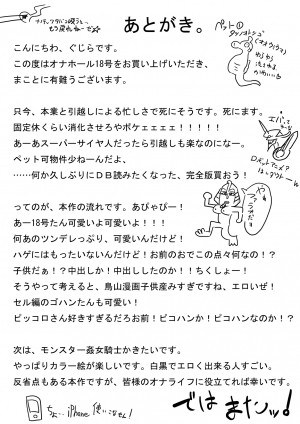 あとがき。
こんにちわ、ぐじらです。
この度はオナホール18号をお買い上げいただき、
まことに有難うございます。
只今、本業と引越しによる忙しさで死にそうです。死にます。
固定休くらい消化させろやボケェェェェ!!!!!!
あーあスーパーサイヤ人だったら引越しも楽なのになー。
ペット可物件少ねーんだよ、
……何か久しぶりにDB読みたくなった、完全版買おう!
ってのが、本作の流れです。あぴゃぴー!
あー18号たん可愛いよ可愛いよ!!!
何あのツンデレっぷり、可愛いんだけど!
ハゲにはもったいないんだけど!お前のおでこの点々何なの!?
子供だぁ!?中出しか!中出ししたのか!!ちくしょー!
そうやって考えると、鳥山漫画子供産みすぎですね、エロいぜ!
セル編のゴハンたんも可愛い!
ピッコロさん好きすぎるだろお前!ピコハンか!ピコハンなのか!?
次は、モンスター姦女騎士かきたいです。
やっぱりカラー絵が楽しいです。白黒でエロく出来る人すごい。
反省点もある本作ですが、皆様のオナライフに役立てれば幸いです。
ではまたッ!